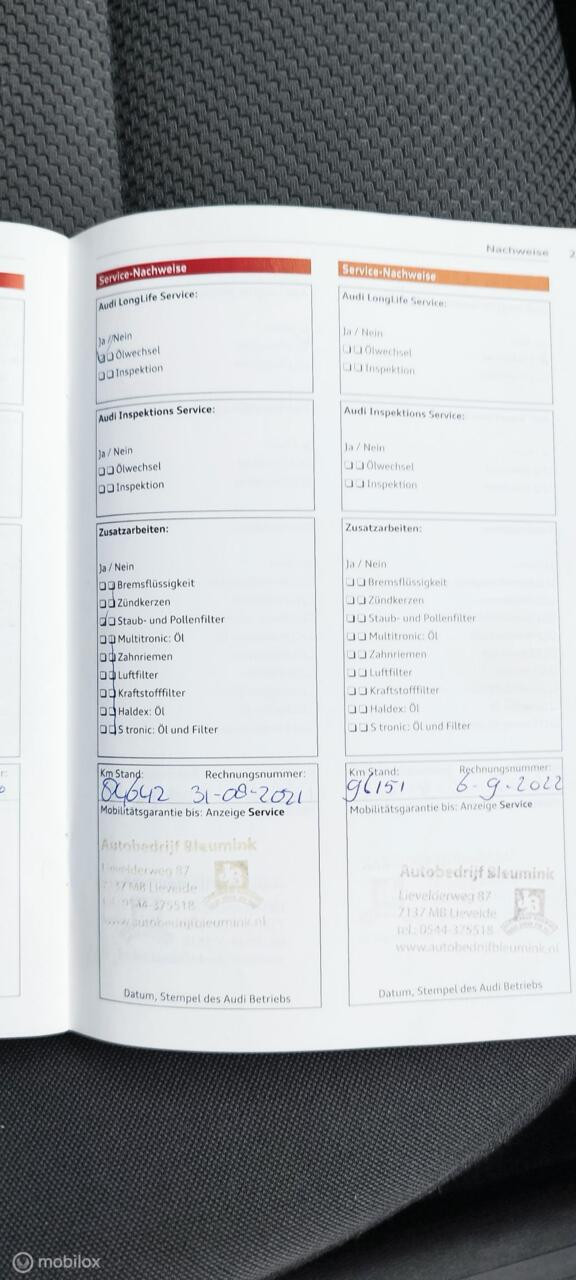 Nachweise 2
Service-Nachweise
Audi LongLife Service:
Ja / Nein
Ölwechsel
Inspektion
Audi Inspektions Service:
Ja / Nein
Ölwechsel
Inspektion
Zusatzarbeiten:
Ja / Nein
Bremsflüssigkeit
Zündkerzen
Staub- und Pollenfilter
Multitronic: Öl
Zahnriemen
Luftfilter
Kraftstofffilter
Haldex: Öl
S tronic: Öl und Filter
Km Stand: Rechnungsnummer:
84642 31-08-2021
Mobilitätsgarantie bis: Anzeige Service
Autobedrijf Bleumink
Lievelderweg 87
7137 MB Lievelde
tel.: 0544-375518
www.autobedrijfbleumink.nl
Datum, Stempel des Audi Betriebs
Service-Nachweise
Audi LongLife Service:
Ja / Nein
Ölwechsel
Inspektion
Audi Inspektions Service:
Ja / Nein
Ölwechsel
Inspektion
Zusatzarbeiten:
Ja / Nein
Bremsflüssigkeit
Zündkerzen
Staub- und Pollenfilter
Multitronic: Öl
Zahnriemen
Luftfilter
Kraftstofffilter
Haldex: Öl
S tronic: Öl und Filter
Km Stand: Rechnungsnummer:
96151 6-9-2022
Mobilitätsgarantie bis: Anzeige Service
Autobedrijf Bleumink
Lievelderweg 87
7137 MB Lievelde
tel.: 0544-375518
www.autobedrijfbleumink.nl
Datum, Stempel des Audi Betriebs
mobilox